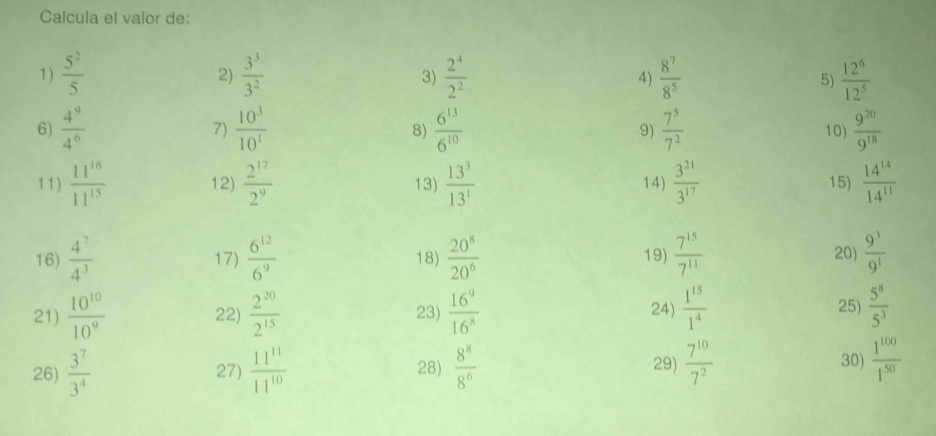 Calcula el valor de:
1) 5²/5 2) 3³/3² 3) 2⁴/2² 4) 8⁷/8⁵ 5) 12⁶/12⁵
6) 4⁹/4⁶ 7) 10³/10¹ 8) 6¹³/6¹⁰ 9) 7⁵/7² 10) 9²⁰/9¹⁸
11) 11¹⁶/11¹⁵ 12) 2¹⁷/2⁹ 13) 13³/13¹ 14) 3²¹/3¹⁷ 15) 14¹⁴/14¹¹
16) 4⁷/4³ 17) 6¹²/6⁹ 18) 20⁸/20⁶ 19) 7¹⁵/7¹¹ 20) 9³/9¹
21) 10¹⁰/10⁹ 22) 2²⁰/2¹⁵ 23) 16⁹/16⁸ 24) 1¹⁵/1⁴ 25) 5⁸/5³
26) 3⁷/3⁴ 27) 11¹¹/11¹⁰ 28) 8⁸/8⁶ 29) 7¹⁰/7² 30) 1¹⁰⁰/1⁵⁰